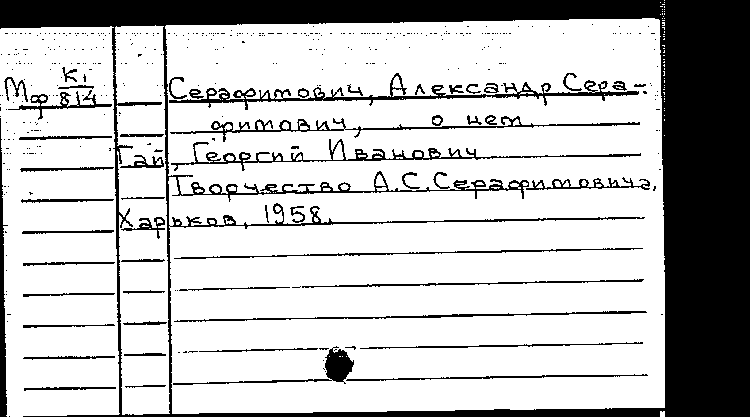 Мф К1/814
Серафимович, Александр Сера-
фимович, о нем
Гай, Георгий Иванович
Творчество А.С.Серафимовича.
Харьков, 1958.